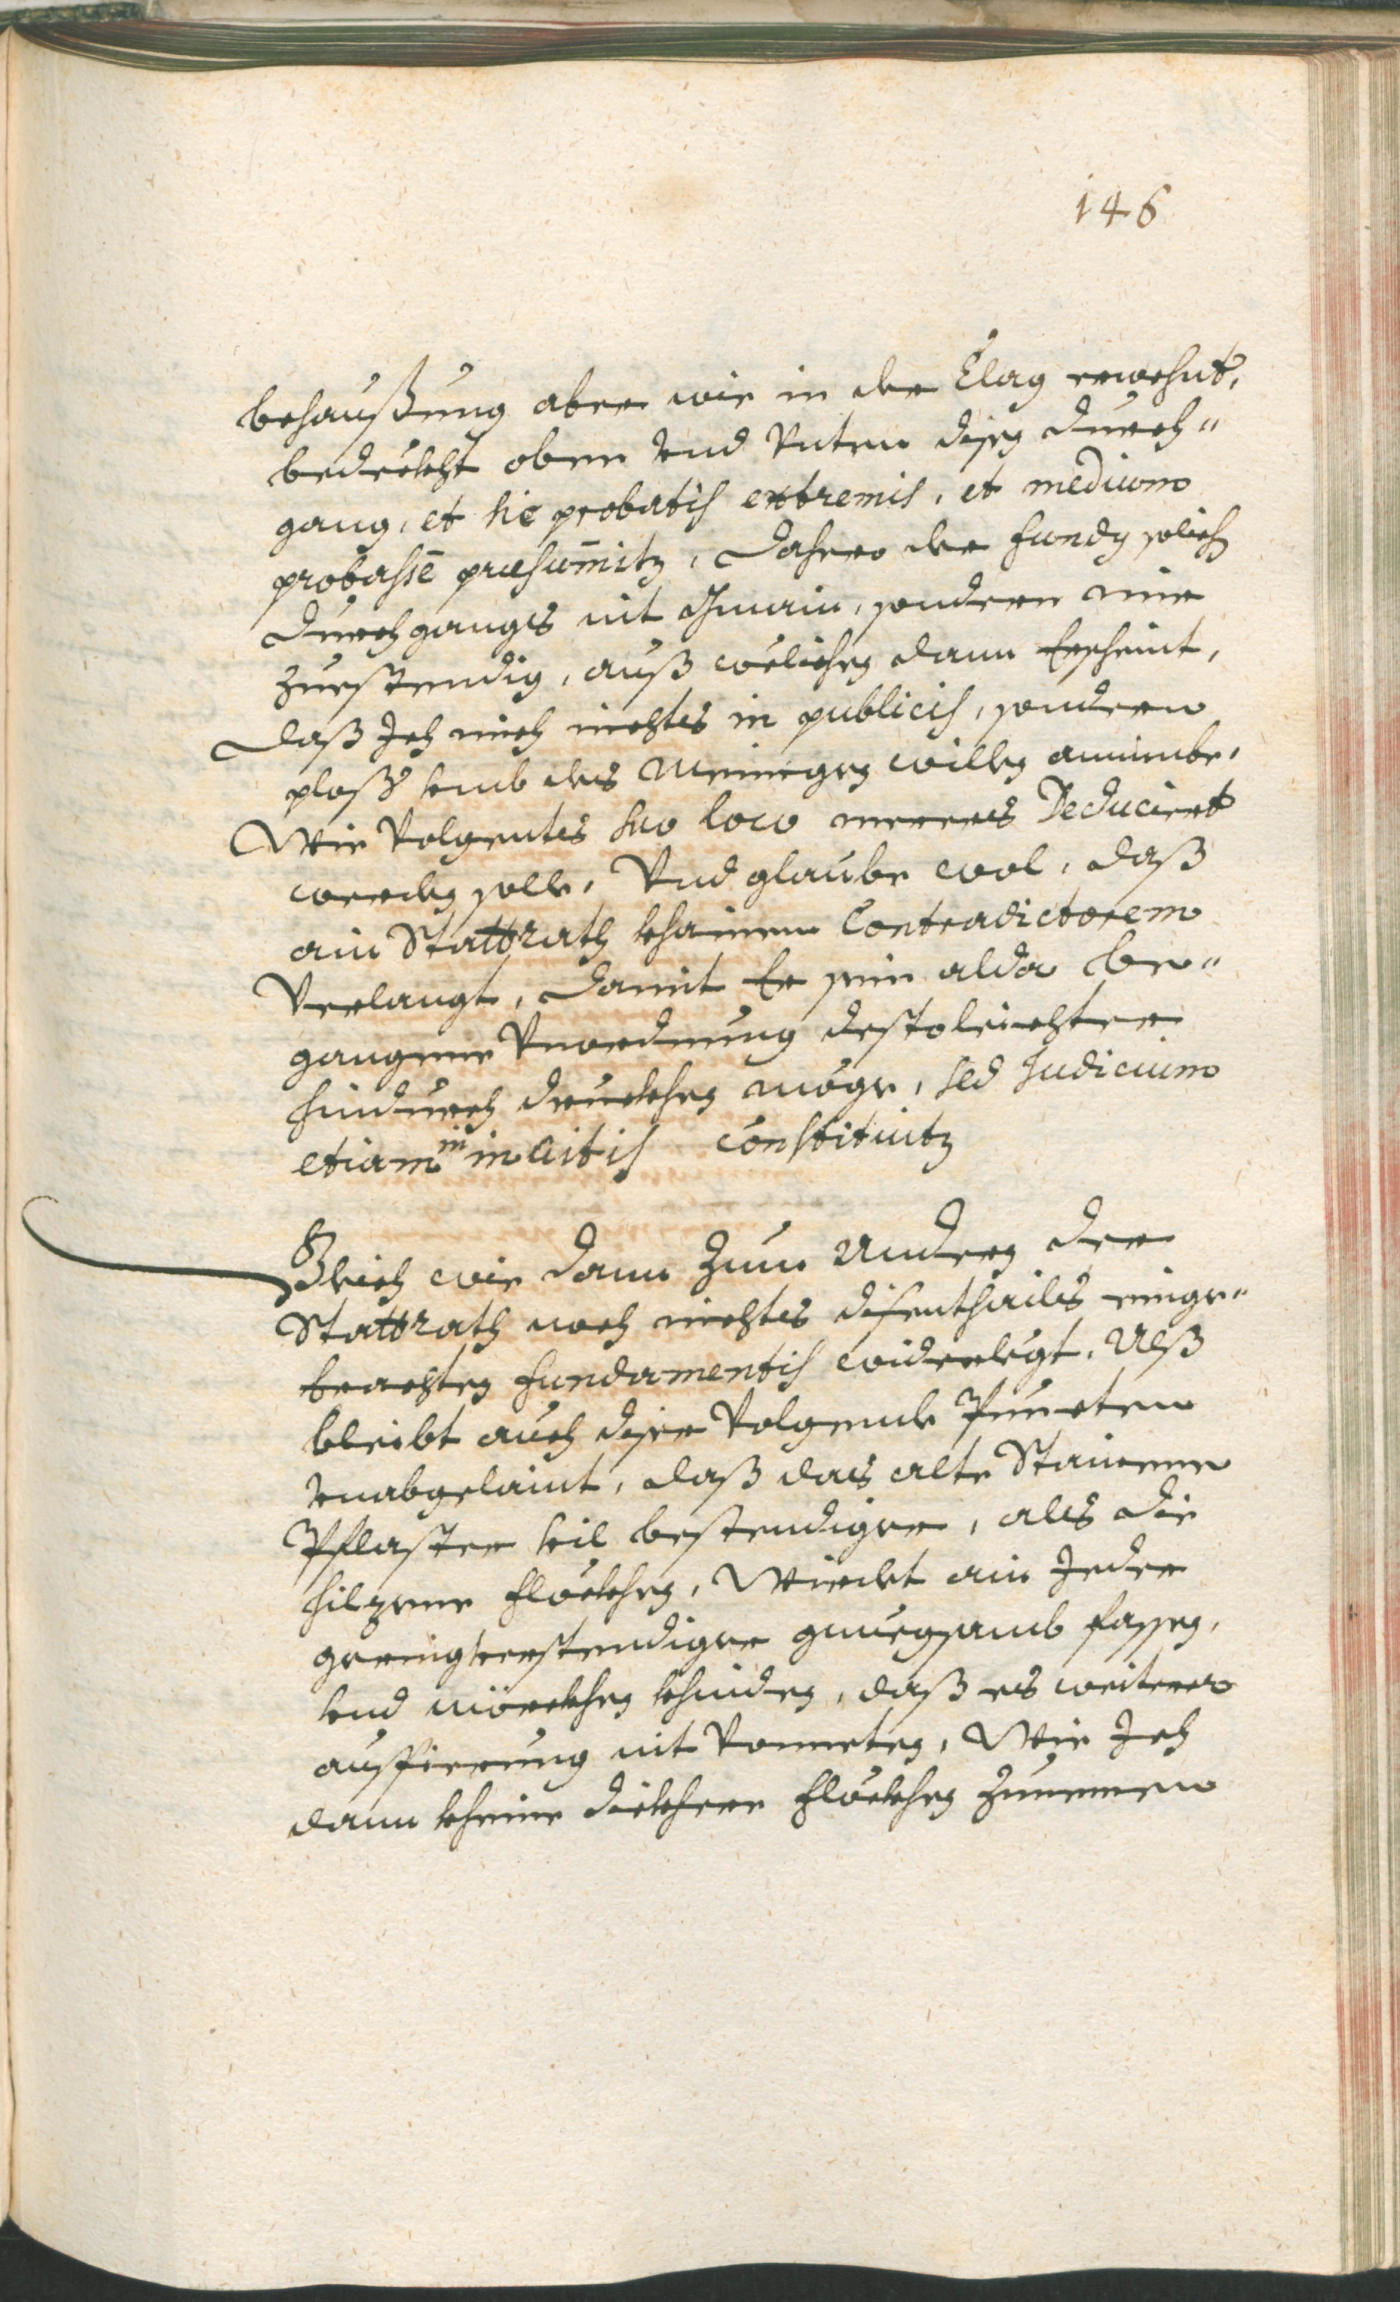 146
behaußung aber wie in der Clag erwehnt,
bedeckht oben und Unten disen Durch-
gang, et sic probatis extremis, et medium
probasse praesumitur, Dahero der fundus solich
Durchgangs nit Gmain, sondern mir
zuestendig, auß welichen dann Erscheint,
daß Ich mich nichtes in publicis, sondern
ploß umb des Meinigen willen annimbe,
Wie Volgentes suo loco mereres Deduciert
werden solle, Und glaube wol, daß
ain Stattrath khainen Contradictorem
Verlangt, damit Er sein alda be-
gangene Unordnung desto leichter
hindurch druckhen möge, sed Judicium
etiam in invitis constituitur
Gleich wie dann zum Andern der
Stattrath noch nichtes disenthails einge-
brachten fundamentis widerlegt, Alß
bleibt auch dise Volgende Puncten
unabgelaint, daß das alte Stainene
Pflaster vil bestendiger, als die
hilzene Flöckhen, Würdet ain Jeder
geringverstendiger gnuegsamb fassen,
und mörckhen khinden, daß es weiterer
ausfierung nit Vonneten, Wie Ich
dann kheine dickhere Flöckhen zunemen